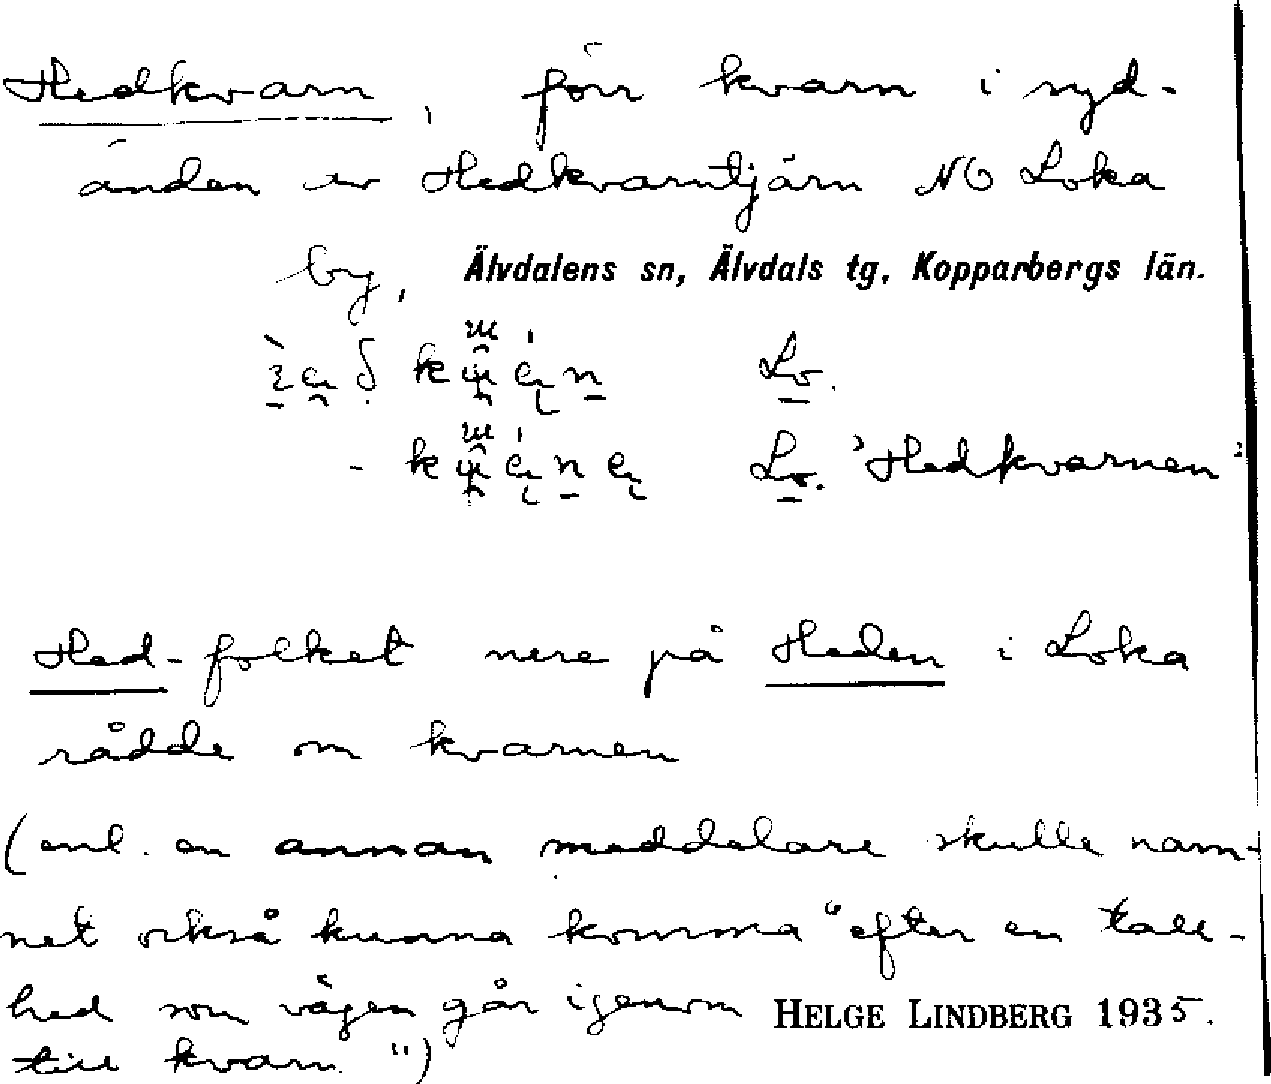 Hedkvarn, förr kvarn i syd-
änden av Hedkvarntjärn NO Loka
by, Älvdalens sn, Älvdals tg, Kopparbergs län.
Lo.
- Lo. 'Hedkvarnen'
Hed-folket nere på Heden i Loka
rådde om kvarnen
(enl. en annan meddelare skulle nam-
net också kunna komma "efter en tall-
hed som vägen går igenom HELGE LINDBERG 1935.
till kvarn")